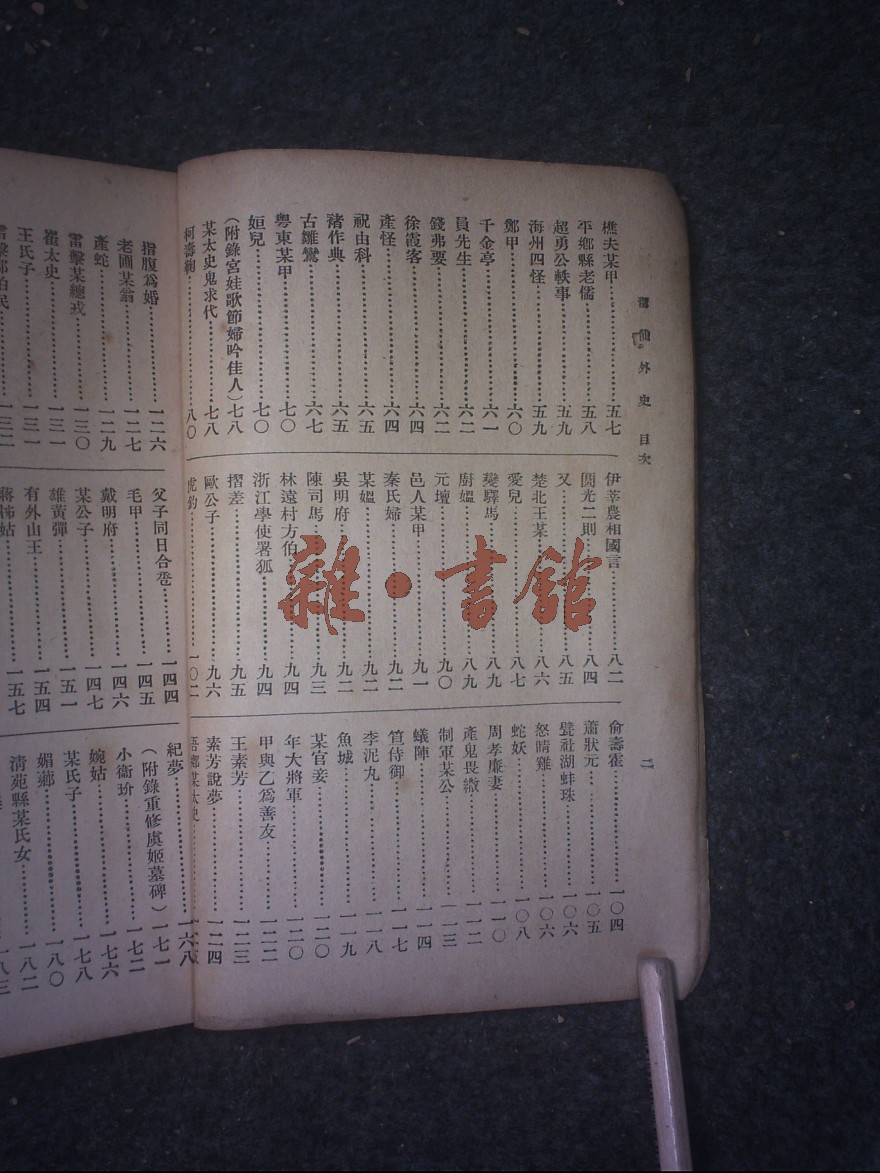 外史 目次
二
樵夫某甲 五七
平鄉縣老儒 五八
超勇公軼事 五九
海州四怪 五九
鄭甲 六〇
千金亭 六一
員先生 六二
錢弗要 六二
徐霞客 六四
產怪 六四
祝由科 六五
褚作典 六六
古雛鸞 六七
粵東某甲 七〇
姮兒 七〇
(附錄宮娃歌節婦吟佳人) 七八
某太史鬼求代 七八
柯壽鞠 八〇
伊莘農相國言 八二
關光二則 八四
又 八五
楚北王某 八六
愛兒 八七
變驛馬 八九
廚媼 八九
元壇 九〇
邑人某甲 九一
秦氏婦 九二
某媼 九二
吳明府 九二
陳司馬 九三
林遠村方伯 九四
浙江學使署狐 九四
摺差 九五
歐公子 九六
虎釣 一〇二
俞壽霍 一〇四
蕭狀元 一〇五
甓社湖蚌珠 一〇六
怒睛雞 一〇六
蛇妖 一〇八
周孝廉妻 一一〇
產鬼畏繖 一一二
制軍某公 一一三
蟻陣 一一四
笪侍御 一一七
李泥丸 一一八
魚城 一一九
某官妾 一二〇
年大將軍 一二〇
甲與乙爲善友 一二二
王素芳 一二三
素芳說夢 一二四
吾鄉某太史 一二五
指腹爲婚 一二六
老圃某翁 一二七
產蛇 一二九
雷擊某總戎 一三〇
崔太史 一三一
王氏子 一三一
一三二
父子同日合巹 一四四
毛甲 一四五
戴明府 一四六
某公子 一四七
雄黃彈 一五一
有外山王 一五四
蔣柿姑 一五七
紀夢 一六八
(附錄重修虞姬墓碑) 一七一
小衞玠 一七二
婉姑 一七六
某氏子 一七八
媚薌 一八〇
淸苑縣某氏女 一八二
一八三
雜·書館